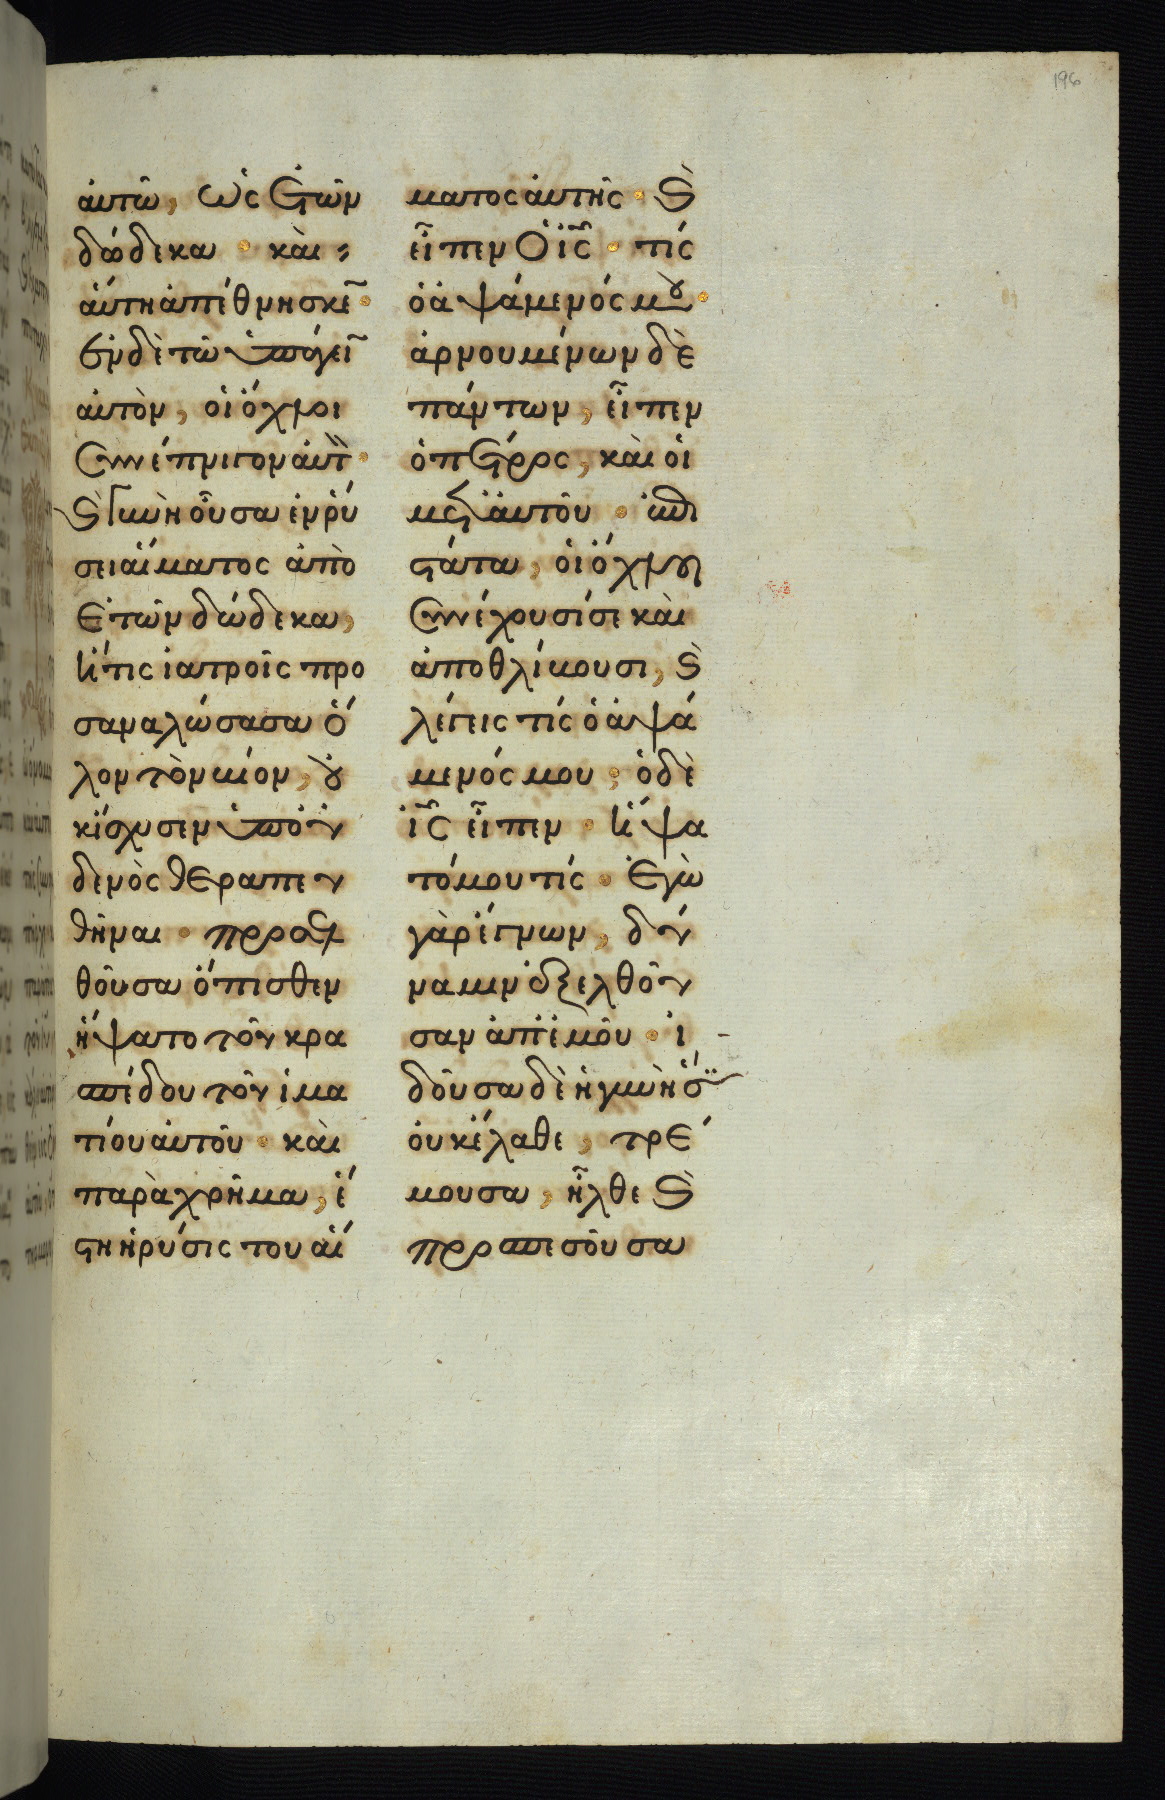 196
αὐτῶ, ὡς ἐτῶν
δώδεκα · καὶ
αὕτη ἀπέθνησκε̄ ·
Ἐν δὲ τῶ ὑπάγεῑ
αὐτὸν, οἱ ὄχλοι
συνέπνιγον αὐτ̀ ·
Ϛ̀ γυνὴ οὖσα ἐν ῥύ
σει αἵματος ἀπὸ
ἐτῶν δώδεκα,
ἥτις ἰατροῖς προ
σαναλώσασα ὅ
λον τὸν βίον, ȣ̓
κ ἴσχυσεν ὑπ' οὐ
δενὸς θεραπευ
θῆναι · προσελ
θοῦσα ὄπισθεν
ἥψατο τοῦ κρα
σπέδου τοῦ ἱμα
τίου αὐτοῦ · καὶ
παραχρῆμα, ἔ
ϛη ἡ ῥύσις του αἵ
ματος αὐτῆς · Ϛ̀
εἶπεν Ὁ ἰ̅ς̅ · τίς
ὁ ἁψάμενός μȣ ·
ἀρνουμένων δὲ
πάντων, εἶπεν
ὁ πέτρος, καὶ οἱ
μετ' αὐτοῦ · ἐπι
ϛάτα, οἱ ὄχλοι
συνέχουσί σε καὶ
ἀποθλίβουσι, Ϛ̀
λέγεις τίς ὁ ἁψά
μενός μου · ὁ δὲ
ἰ̅ς̅ εἶπεν · ἥψα
τό μου τίς · Ἐγὼ
γὰρ ἔγνων, δύ
ναμιν ἐξελθοῦ
σαν ἀπ' ἐμοῦ · ἰ
δοῦσα δὲ ἡ γυνὴ ὅτ̈
οὐκ ἔλαθε, τρέ
μουσα, ἦλθε Ϛ̀
προσπεσοῦσα